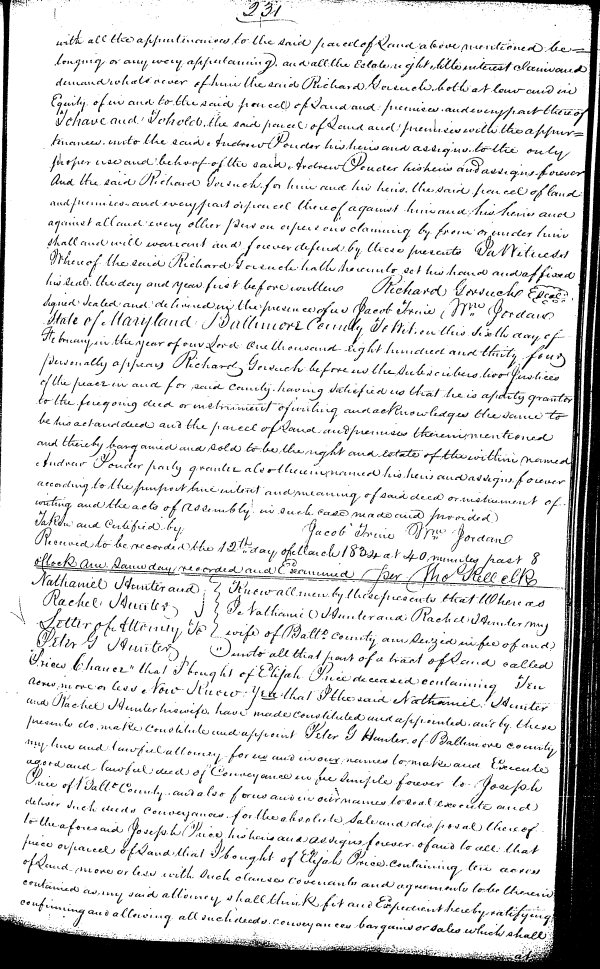 231
with all the appurtenances to the said parcel of Land above mentioned be=
longing or any way appertaining, and all the Estate right title interest claim and
demand whatsoever of him the said Richard Gorsuch both at law and in
Equity of in and to the said parcel of Land and premises and every part there of
To have and To hold, the said parcel of Land and premises with the appur=
tenances unto the said Andrew Ponder his heirs and assigns to the only
proper use and behoof of the said Andrew Ponder his heirs and assigns forever
And the said Richard Gorsuch for him and his heirs, the said parcel of land
and premises and every part & parcel there of against him and his heirs and
against all and every other person or persons claiming by from or under him
shall and will warrant and forever defend by these presents In Witness
Where of the said Richard Gorsuch hath hereunto set his hand and affixed
his seal the day and year first before written Richard Gorsuch Seal
signed sealed and delivered in the presence of us Jacob Wm Jordan
State of Maryland Baltimore County To Wit. on this sixth day of
February in the year of our Lord One thousand eight hundred and thirty four
personally appears Richard Gorsuch before us the subscribers two Justices
of the peace in and for said county, having satisfied us that he is a party grantor
to the foregoing deed or instrument of writing and acknowledges the same to
be his act and deed and the parcel of Land and premises therein mentioned
and thereby bargained and sold to be the right and estate of the within named
Andrew Ponder party grantee also therein named his heirs and assigns forever
according to the purport true intent and meaning of said deed or instrument of
writing and the acts of Assembly in such case made and provided
Taken and Certified by Jacob Wm Jordan
Received to be recorded the 12th day of March 1834 at 40 minutes past 8
oClock am same day recorded and Examined per Tho Kell clk
Nathaniel Hunter and
Rachel Hunter
Letter of Attorney To
Peter G Hunter
Know all men by these presents that Whereas
I Nathaniel Hunter and Rachel Hunter my
wife of Balto County am Seized in fee of and
unto all that part of a tract of Land called
"Prices Chance" that I bought of Elijah Price deceased containing Ten
acres more or less Now Know Yea that I the said Nathaniel Hunter
and Rachel Hunter his wife, have made constituted and appointed and by these
presents do, make constitute and appoint Peter G Hunter of Baltimore county
my true and lawful attorney for us and in our names to make and Execute
a good and lawful deed of Conveyance in fee simple forever to Joseph
Price of Balto County and also for us and in our names to seal execute and
deliver such deeds conveyances for the absolute Sale and disposal there of
to the aforesaid Joseph Price his heirs and assigns forever of and to all that
piece or parcel of Land that I bought of Elijah Price containing ten acres
of Land more or less with such clauses covenants and agreements to be therein
contained as my said attorney shall think fit and Expedient hereby ratifying
confirming and allowing all such deeds conveyances bargains or sales which shall
at